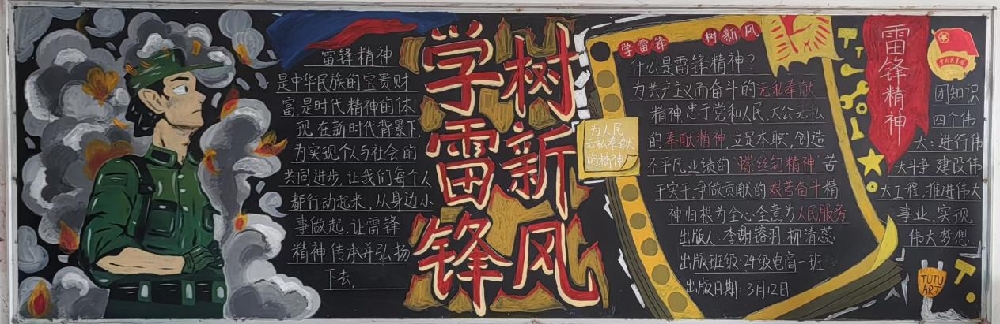 雷锋精神
是中华民族的宝贵财
富,是时代精神的体
现.在新时代背景下
为实现个人与社会的
共同进步,让我们每个人
都行动起来,从身边小
事做起,让雷锋
精神传承并弘扬
下去.
学雷锋
树新风
学雷锋 树新风
什么是雷锋精神?
为共产主义而奋斗的无私奉献
精神忠于党和人民,大公无私
的奉献精神,立足本职,创造
不平凡业绩的螺丝钉精神 苦
干实干争做贡献的艰苦奋斗精
神归根为全心全意为人民服务
出版人:李谢
出版班级:24级电商一班
出版日期:3月12日
为人民
无私奉献
的精神
雷锋精神
团知识
四个伟
大:进行伟
大斗争 建设伟
大工程,推进伟大
事业,实现
伟大梦想
TUTU
ART